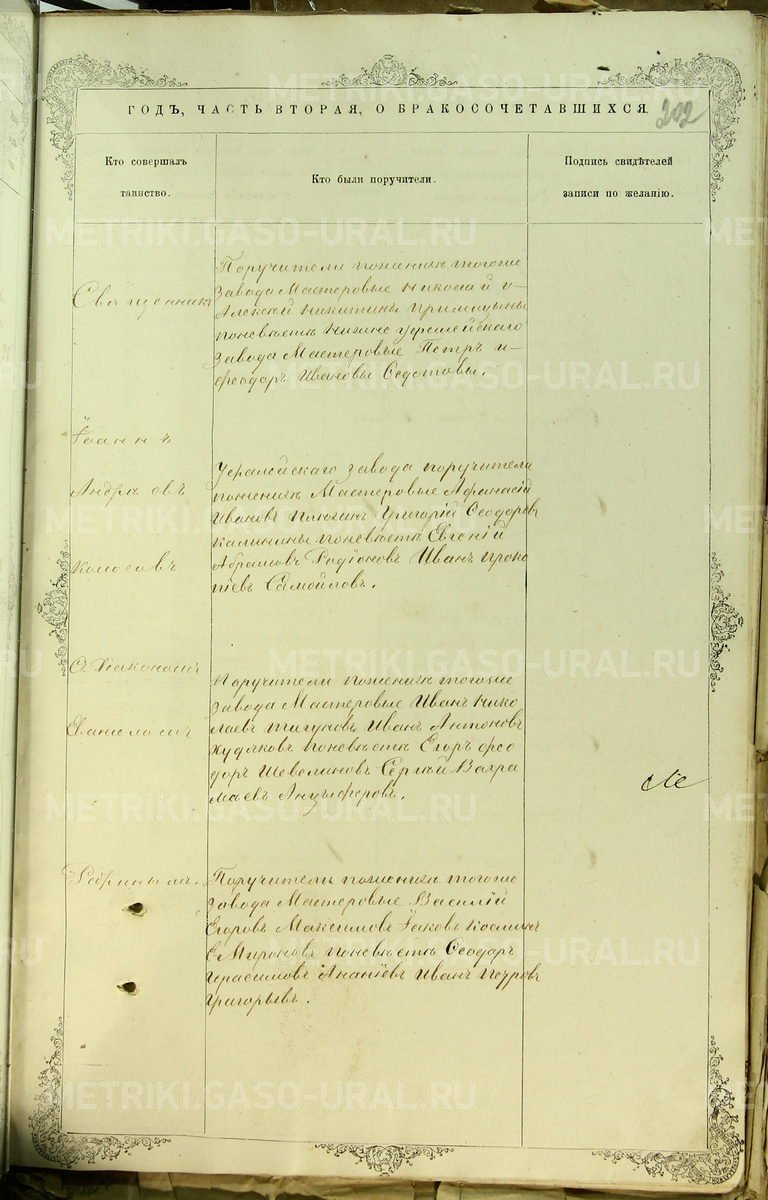 ГОДЪ, ЧАСТЬ ВТОРАЯ, О БРАКОСОЧЕТАВШИХСЯ.
202
Кто совершалъ
таинство.
Кто были поручители.
Подпись свидѣтелей
записи по желанію.
Священникъ
Іоаннъ
Андреевъ
съ Діакономъ
Поручители по женихѣ тогоже
завода Мастеровые Николай и
Алексѣй Никитины
по невѣстѣ Нижне Уфалейскаго
завода Мастеровые Петръ и
Феодоръ Ивановы Федотовы.
Уфалейскаго завода поручители
по женихѣ Мастеровые Афанасій
Ивановъ Григорій Феодоровъ
Калининъ по невѣстѣ Евгеній
Абрамовъ Родіоновъ Иванъ Проко
піевъ Самойловъ.
Поручители по женихѣ тогоже
завода Мастеровые Иванъ Нико
лаевъ Иванъ Антоновъ
Худяковъ по невѣстѣ Егоръ Фео
доръ Сергѣй Вахра
маевъ
Поручители по женихѣ тогоже
завода Мастеровые Василій
Егоровъ Максимовъ Іаковъ Косминъ
по невѣстѣ Феодоръ
Герасимовъ Ананіевъ Иванъ Петровъ
Григорьевъ.
METRIKI.GASO-URAL.RU